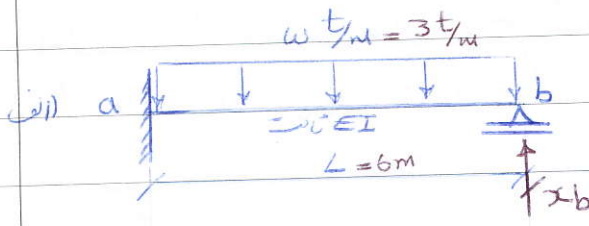 ω t/m = 3 t/m
الف) a b
ثابت EI
L = 6m
xb